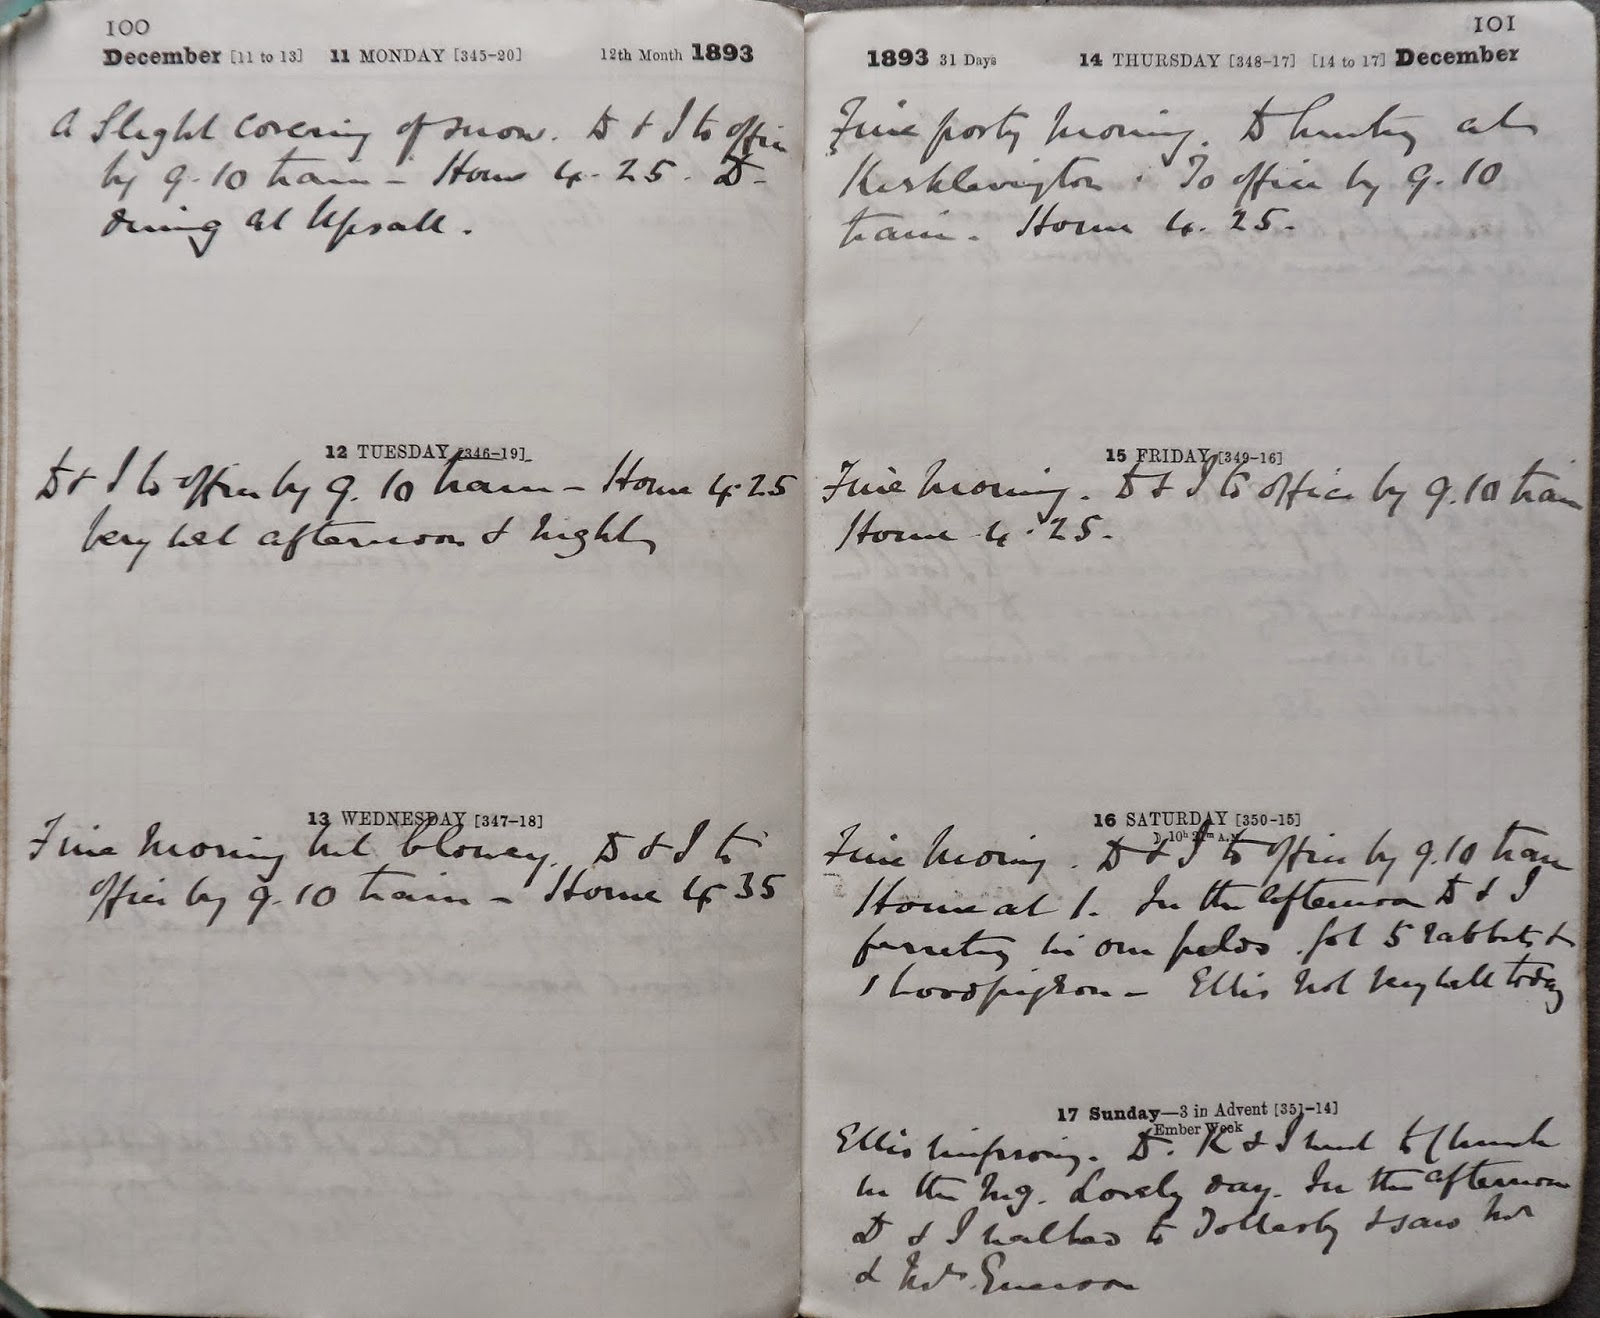 100
December [11 to 13] 11 MONDAY [345-20] 12th Month 1893
A Slight covering of snow. D & I to office
by 9.10 train – Home 4.25. D.
dining at Upsall.
12 TUESDAY [346-19]
D & I to office by 9.10 train – Home 4.25
Very wet afternoon & night
13 WEDNESDAY [347-18]
Fine Morning but blowey. D & I to
office by 9.10 train – Home 4 35
101
1893 31 Days 14 THURSDAY [348-17] [14 to 17] December
Fine frosty Morning. D hunting at
Kirklevington. To office by 9.10
train. Home 4.25.
15 FRIDAY [349-16]
Fine Morning. D & I to office by 9.10 train
Home 4.25.
16 SATURDAY [350-15]
Fine Morning. D & I to office by 9.10 train
Home at 1. In the afternoon D & I
ferreting in our fields. got 5 rabbits &
1 Woodpigeon – Ellis not very well today
17 Sunday—3 in Advent [351-14]
Ember Week
Ellis improving. D. K & I went to Church
in the Mg. Lovely day. In the afternoon
D & I walked to Tollesby & saw Mr
& Mrs Emerson